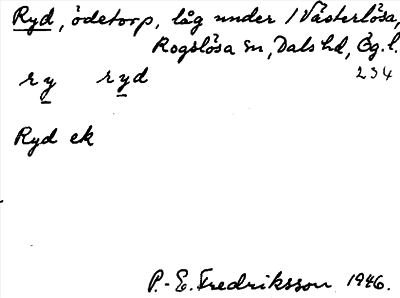 Ryd, ödetorp, låg under /Västerlösa,
Rogslösa sn, Dals hd, Ög. l.
234
ry ryd
Ryd ek
P.-E. Fredriksson 1946.